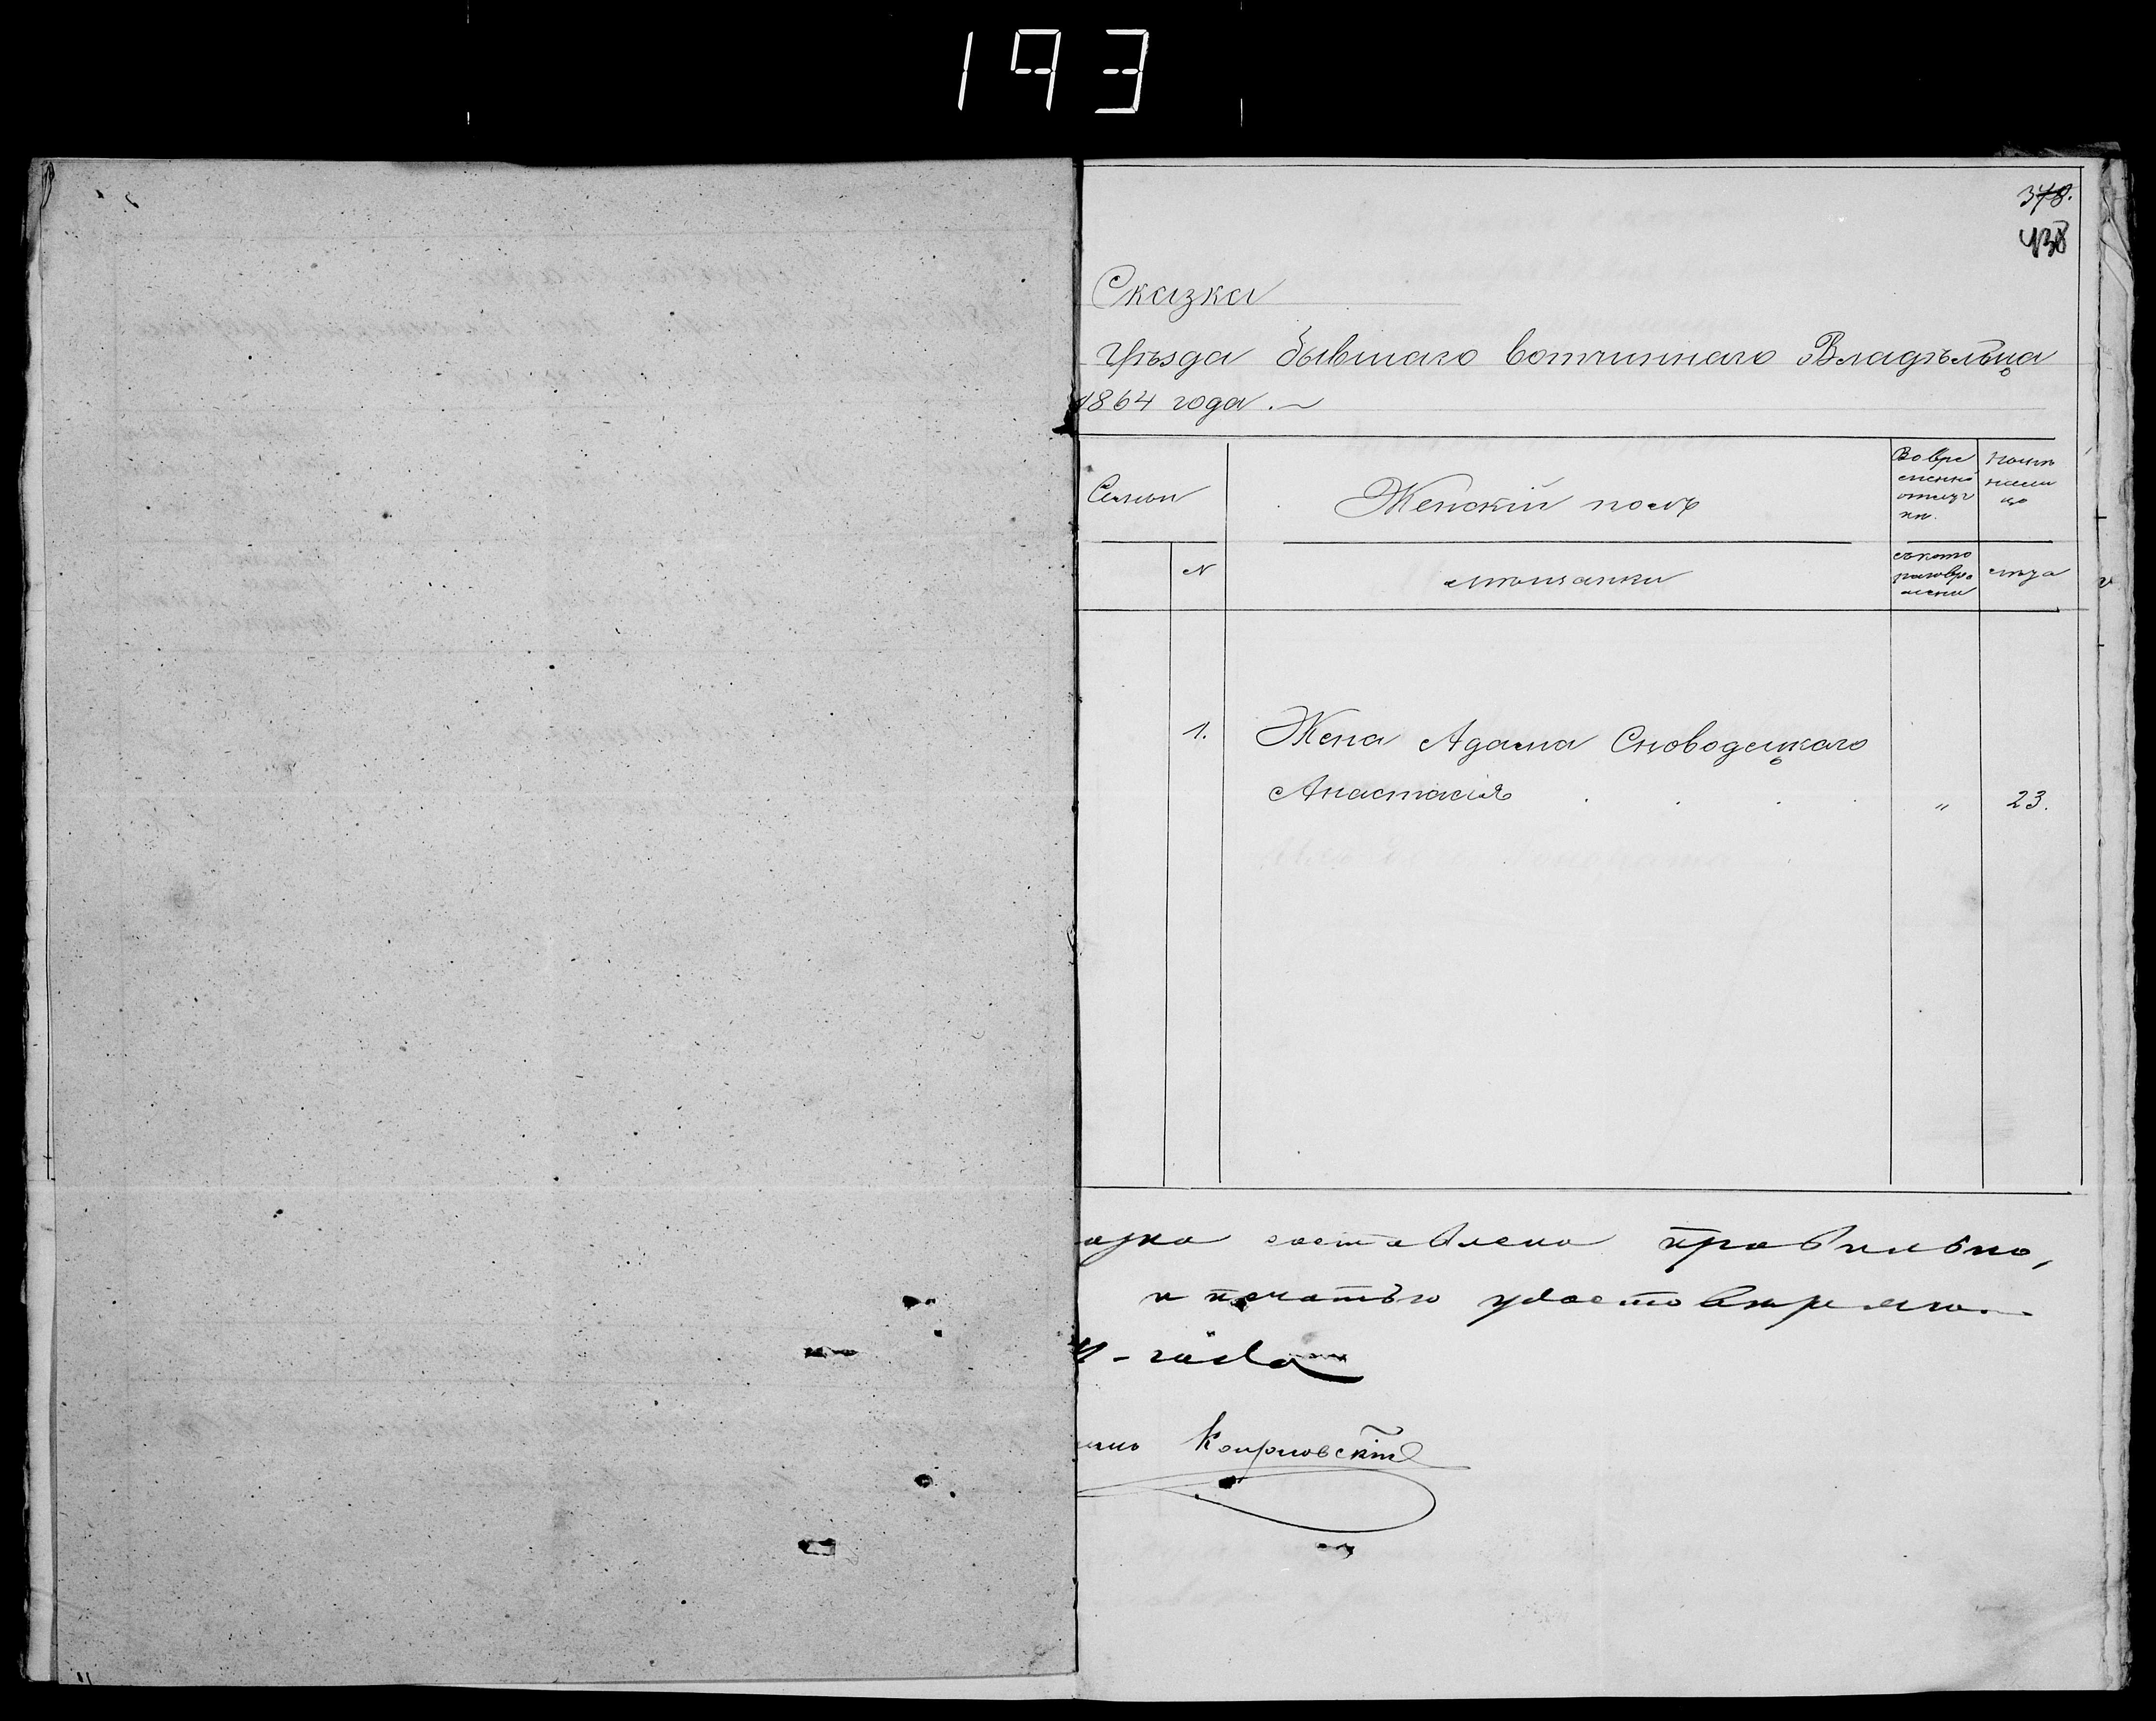 193
378.
438
Сказка
Уѣзда бывшаго вотчиннаго Владѣльца
1864 года.
Семьи
Женскій полъ
Во вре
менно
отлуч
кѣ.
Нынѣ
налиц
цо
N
мѣщанки
съ кото
раго вре
мени
лѣта
1. Жена Адама Сноводецкаго
Анастасія . . . . " 23.
азка составлена правильно,
и печатью удостовѣряю.
4 - года